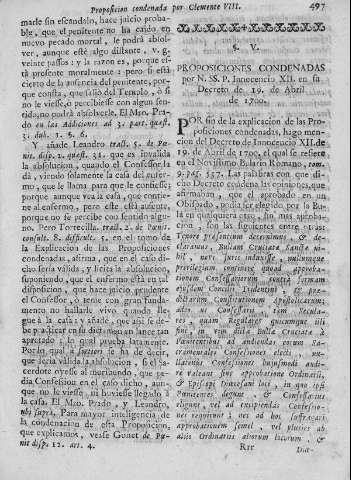 Proposicion condenada por Clemente VIII. 497
marle sin escandalo, hace juicio proba-
ble, que el penitente no ha caìdo en
nuevo pecado mortal, le podrá absol-
ver, aunque estè algo distante, v. g.
veinte passos: y la razon es, porque es-
tá presente moralmente: pero si està
cierto de la ausencia del penitente, por-
que consta, que salio del Templo, ò si
no le viesse, ò percibiesse con algun sen-
tido, no podrá absolverle. El Mro. Pra-
do en las Addiciones ad 3. part. quæst.
3. dub. 1. §. 6.
Y añade Leandro tract. 5. de Pœ-
nit. disp. quæst. 32. que es invalida
la absolucion, quando el Confessor la
dà, viendo solamente la casa del enfer-
mo, que le llama para que le confiesse;
porque aunque vea la casa, que contie-
ne al enfermo, pero este està ausente,
porque no se percibe con sentido algu-
no. Pero Torrecilla, tract. 2. de Pœnit.
consult. 8. difficult. 5. en el tomo de
la Explicacion de las Proposiciones
condenadas, afirma, que en el caso di-
cho seria válida, y licita la absolucion,
suponiendo, que el enfermo està en tal
disposicion, que hace juicio prudente
el Confessor, ò teme con gran funda-
mento no hallarle vivo quando lle-
gue à la casa; y añade, que assi se de-
be practicar en su dictamen en lance tan
apretado; lo qual prueba latamente.
Por lo qual à fortiori se ha de decir,
que seria válida la absolucion, si el Sa-
cerdote oyesse al moribundo, que pe-
dia Confession en el caso dicho, aun-
que no le viesse, ni huviesse llegado à
la casa. El Mro. Prado, y Leandro,
ubi supra. Para mayor inteligencia de
la condenacion de esta Proposicion,
que explicamos, vease Gonet de Pœ-
nit. disp. 12. art. 4.
§. V.
PROPOSICIONES CONDENADAS
por N. SS. P. Innocencio XII. en su
Decreto de 19. de Abril
de 1700.
POR fin de la explicacion de las Pro-
posiciones condenadas, hago men-
cion del Decreto de Innocencio XII. de
19. de Abril de 1700. el qual se refiere
en el Novissimo Bulario Romano, tom.
9. pag. 557. Las palabras con que di-
cho Decreto condena las opiniones, que
afirmaban, que el aprobado en un
Obispado, podia ser elegido por la Bu-
la en qualquiera otro, sin mas aproba-
cion, son las siguientes entre otras:
Tenore præsentium decernimus, & de-
claramus, Bullam Cruciatæ Sanctæ ni-
hil novi juris induxisse, nullumque
Privilegium continere quoad approba-
tionem Confessariorum contra formam
ejusdem Concilii Tridentini, & præ-
dictarum Constitutionum Apostolicarum;
ideo ut Confessarii, tam Sæcula-
res, quam Regulares quicumque illi
sint, in vim dictæ Bullæ Cruciatæ à
Pœnitentibus ad audiendas eorum Sa-
cramentales Confessiones electi, nu-
llatenus Confessiones hujusmodi audi-
re valeant sine approbatione Ordinarii,
& Episcopi Diœcesani loci, in quo ipsi
Pœnitentes degunt, & Confessarios
eligunt, vel ad excipiendas Confessio-
nes requirunt; nec ad hoc suffragari
approbationem semel, vel pluries ab
aliis Ordinariis aliorum locorum, &
Rrr Diœ-